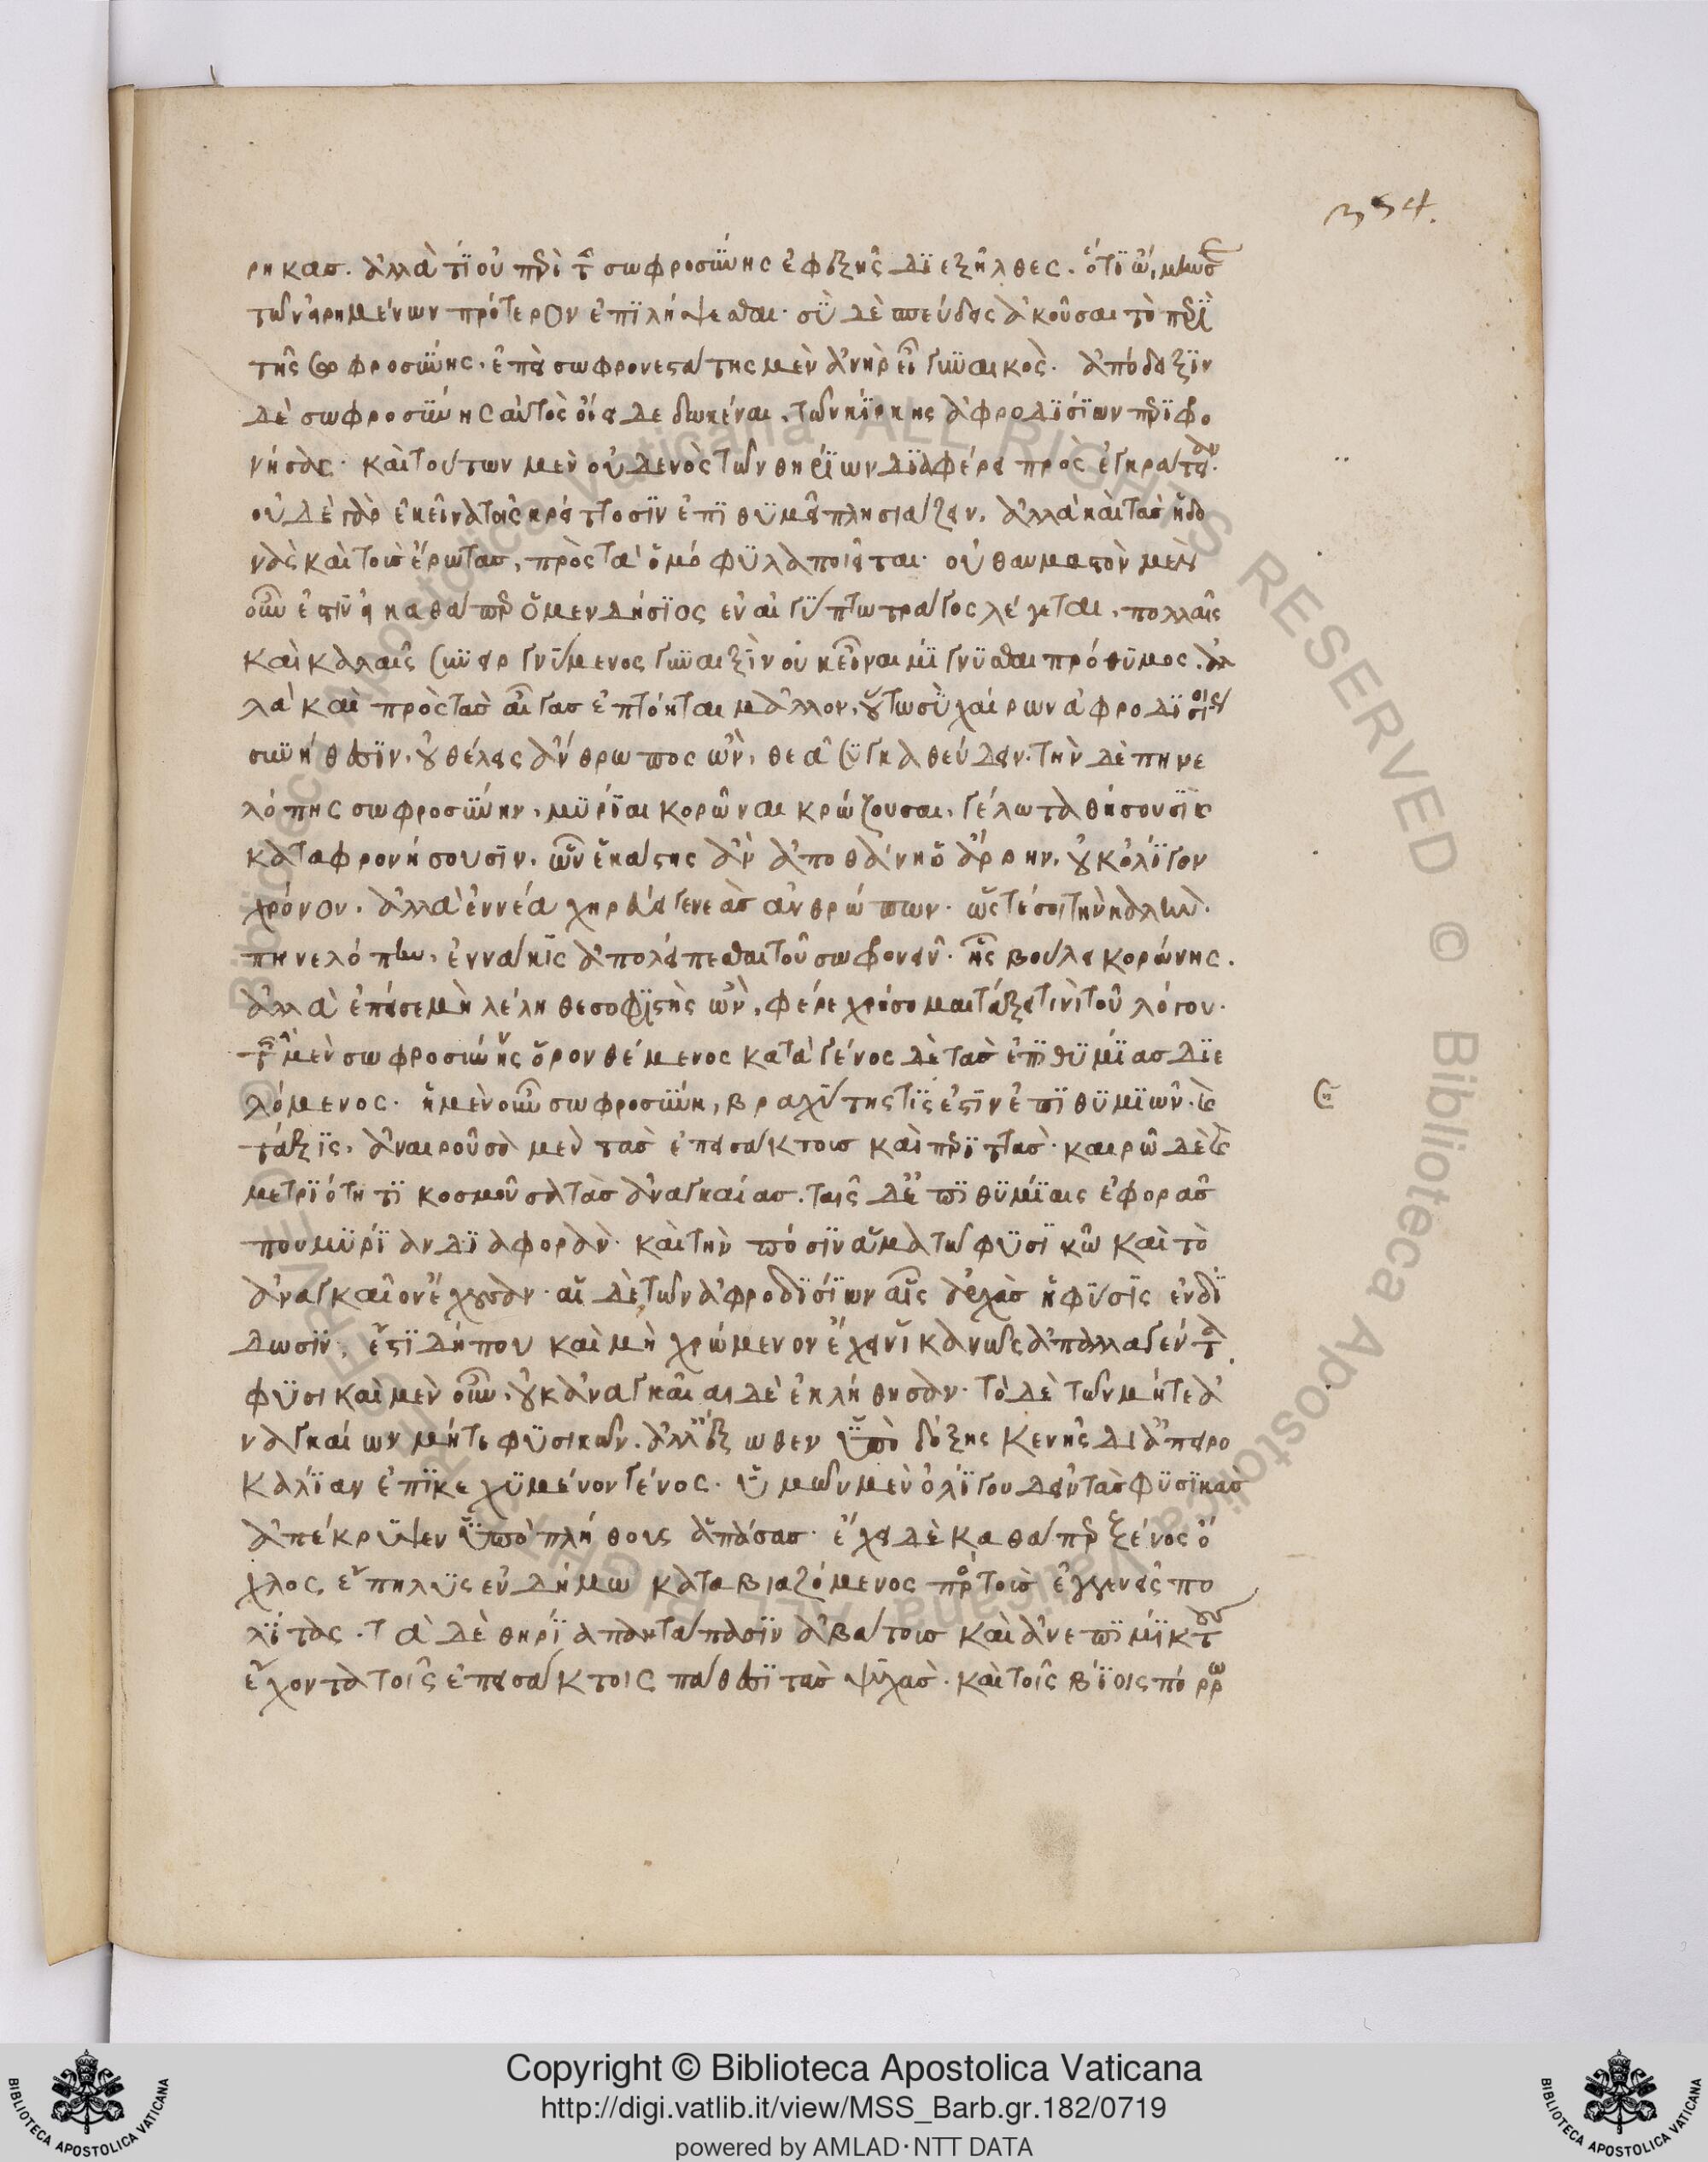 354.
ρηκας. ἀλλὰ τί οὐ περὶ τῆς σωφροσύνης ἐφεξῆς διεξῆλθες. ὅτι ὤμην σε
τῶν εἰρημένων πρότερον ἐπιλήψεσθαι· σὺ δὲ σπεύδεις ἀκοῦσαι τὸ περὶ
τῆς σωφροσύνης. ἐπεὶ σωφρονεστάτης μὲν ἀνὴρ εἶ γυναικός. ἀπόδειξιν
δὲ σωφροσύνης αὐτὸς οἴει δεδωκέναι, τῶν κίρκης ἀφροδισίων περιφρο
νήσας· καὶ τούτων μὲν οὐδενὸς τῶν θηρίων διαφέρεις πρὸς ἐγκράτειαν.
οὐδὲ γὰρ ἐκεῖνα τοῖς κρείττοσιν ἐπιθυμεῖ πλησιάζειν, ἀλλὰ καὶ τὰς ἡδο
νὰς καὶ τοὺς ἔρωτας, πρὸς τὰ ὁμόφυλα ποιεῖται· οὐ θαυμαστὸν μὲν
οὖν ἐστὶν εἰ καθάπερ ὁ μενδήσιος ἐν αἰγύπτω τράγος λέγεται, πολλαῖς
καὶ καλαῖς συνειργνύμενος γυναιξὶν οὐκ εἶναι μίγνυσθαι πρόθυμος. ἀλ
λὰ καὶ πρὸς τὰς αἶγας ἐπτόηται μᾶλλον, οὕτω σὺ χαίρων ἀφροδισίοις
συνήθεσιν, οὐ θέλεις ἄνθρωπος ὢν, θεᾶ συγκαθεύδειν. τὴν δὲ πηνε
λόπης σωφροσύνην, μυρίαι κορῶναι κρώζουσαι, γέλωτα θήσουσι καὶ
καταφρονήσουσιν, ὧν ἑκάστης ἂν ἀποθάνη ὁ ἄρρην, οὐκ ὀλίγον
χρόνον, ἀλλὰ ἐννέα χηρεύει γενεὰς ἀνθρώπων· ὥστε σοι τὴν καλὴν
πηνελόπην, ἐννάκις ἀπολείπεσθαι τοῦ σωφρονεῖν ἧς βούλει κορώνης.
ἀλλὰ ἐπεί σε μὴ λέληθε σοφιστὴς ὢν, φέρε χρήσομαι τάξει τινὶ τοῦ λόγου.
τῆς μὲν σωφροσύνης ὅρον θέμενος κατὰ γένος δὲ τὰς ἐπιθυμίας διε
λόμενος. ἡ μὲν οὖν σωφροσύνη, βραχύτης τίς ἐστιν ἐπιθυμιῶν. καὶ
τάξις, ἀναιροῦσα μὲν τὰς ἐπεισάκτους καὶ περιττάς· καιρῶ δὲ καὶ
μετριότητι κοσμοῦσα τὰς ἀναγκαίας. ταῖς δὲ ἐπιθυμίαις ἐφορᾶς
που μυρίαν διαφοράν· καὶ τὴν πόσιν ἅμα τῶ φυσικῶ καὶ τὸ
ἀναγκαῖον ἔχουσαν· αἱ δὲ τῶν ἀφροδισίων αἷς ἀρχὰς ἡ φύσις ἐνδί
δωσιν, ἔστι δήπου καὶ μὴ χρώμενον ἔχειν ἱκανῶς ἀπαλλαγέντα.
φυσικαὶ μὲν οὖν, οὐκ ἀναγκαῖαι δὲ ἐκλήθησαν· τὸ δὲ τῶν μήτε ἀ
ναγκαίων μήτε φυσικῶν. ἀλλ' ἔξωθεν ὑπὸ δόξης κενῆς δι' ἀπειρο
καλίαν ἐπικεχυμένον γένος. ὑμῶν μὲν ὀλίγου δεῖν τὰς φυσικὰς
ἀπέκρυψεν ὑπὸ πλήθους ἁπάσας· ἔχει δὲ καθάπερ ξένος ὄ
χλος, ἔπηλυς ἐν δήμω καταβιαζόμενος πρὸς τοὺς ἐγγενεῖς πο
λίτας. τὰ δὲ θηρία παντάπασιν ἀβάτους καὶ ἀνεπιμίκτους
ἔχοντα τοῖς ἐπεισάκτοις πάθεσι τὰς ψυχάς. καὶ τοῖς βίοις πόρρω
Copyright © Biblioteca Apostolica Vaticana
http://digi.vatlib.it/view/MSS_Barb.gr.182/0719
powered by AMLAD·NTT DATA